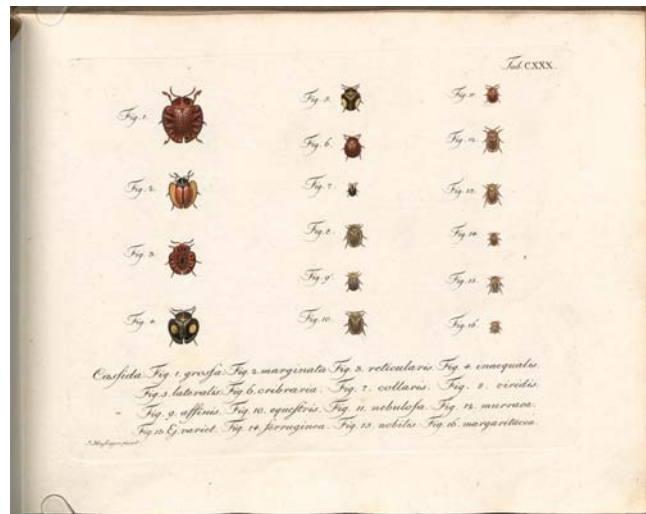 Tab. CXXX.
Fig. 1.
Fig. 2.
Fig. 3.
Fig. 4.
Fig. 5.
Fig. 6.
Fig. 7.
Fig. 8.
Fig. 9.
Fig. 10.
Fig. 11.
Fig. 12.
Fig. 13.
Fig. 14.
Fig. 15.
Fig. 16.
Cassida Fig. 1. grossa. Fig. 2. marginata Fig. 3. reticularis. Fig. 4. inaequalis.
Fig. 5. lateralis Fig. 6. cribraria. Fig. 7. collaris. Fig. 8. viridis.
Fig. 9. affinis. Fig. 10. equestris. Fig. 11. nebulosa. Fig. 12. murraea.
Fig. 13. Ej. variet. Fig. 14. ferruginea. Fig. 15. nobilis. Fig. 16. margaritacea.